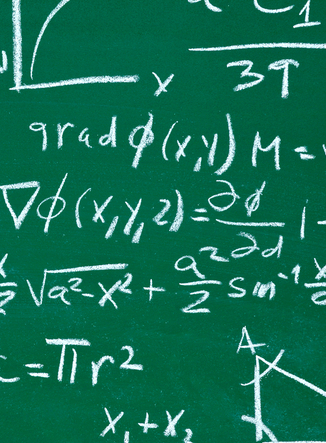 C₁
x 3T
grad ϕ(x,y) M =
∇ϕ(x,y,z) = ∂ϕ/∂d
x/2 √a²-x² + a²/2 sin⁻¹ x
= πr²
A
x₁+x₂